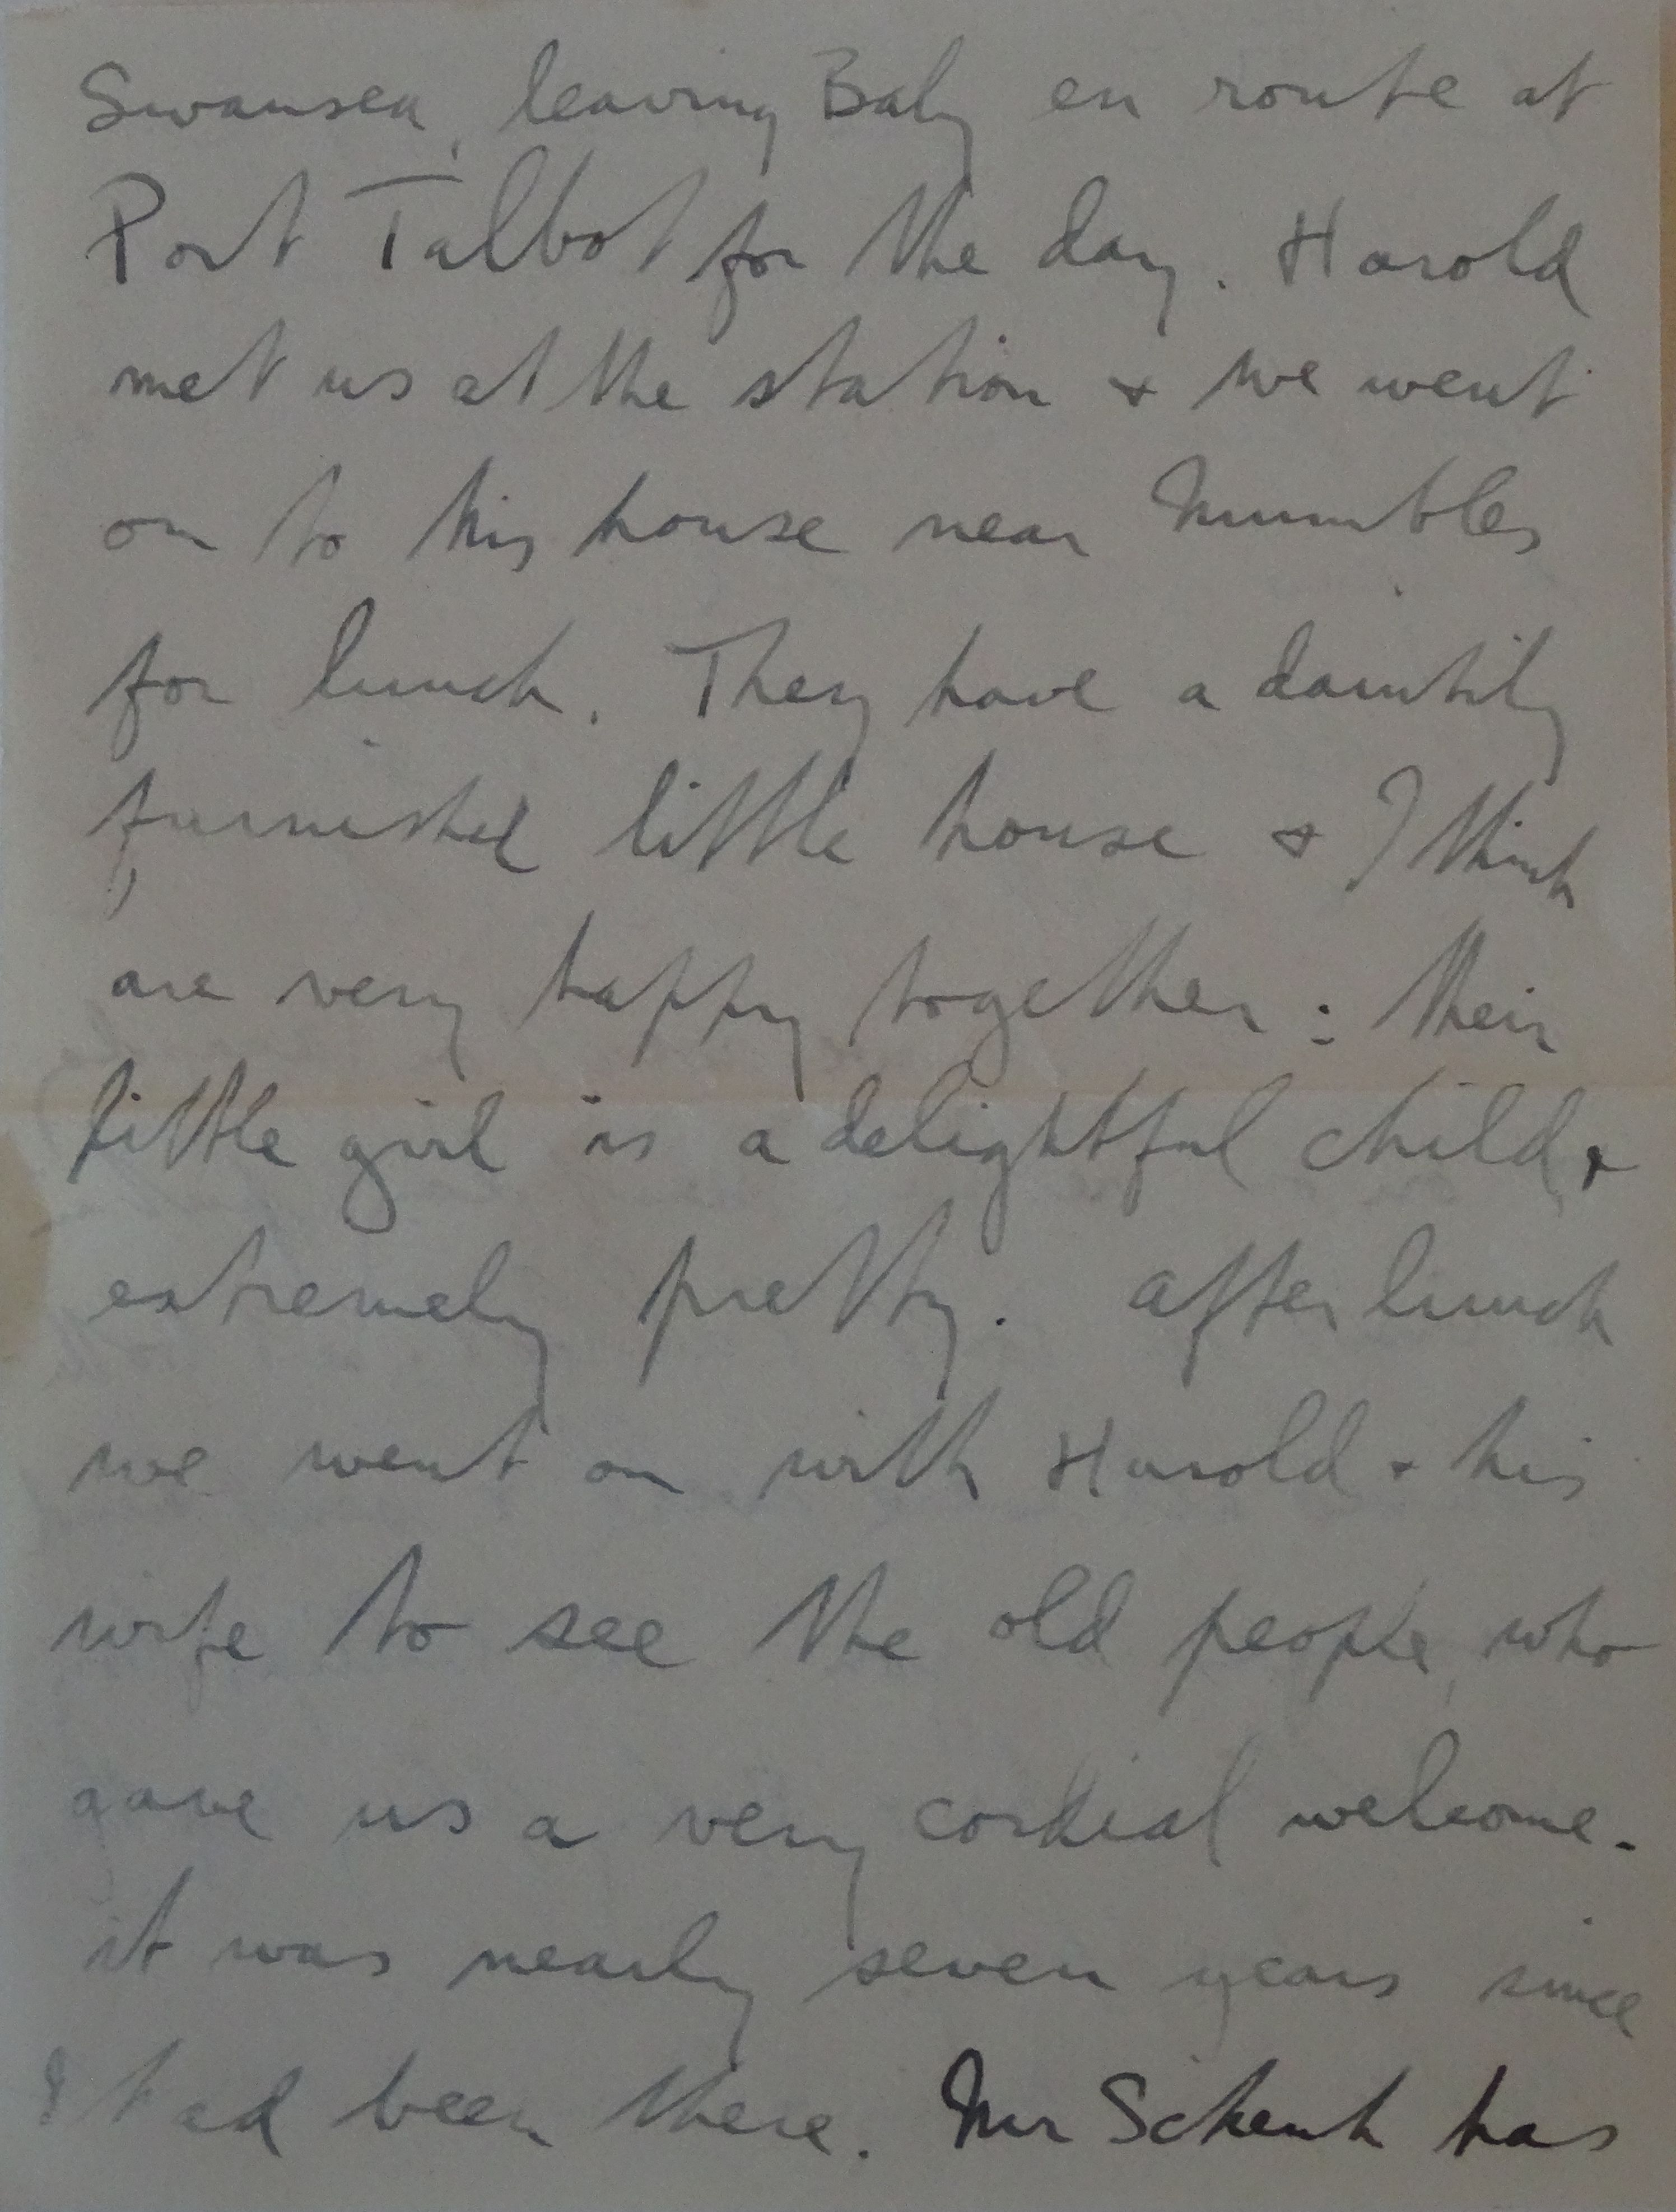 Swansea, leaving Baby en route at
Port Talbot for the day. Harold
met us at the station & we went
on to his house near Mumbles
for lunch. They have a daintily
furnished little house & I think
are very happy together: their
little girl is a delightful child, &
extremely pretty. After lunch
we went on with Harold & his
wife to see the old people, who
gave us a very cordial welcome.
it was nearly seven years since
I had been there. Mr Schenk has